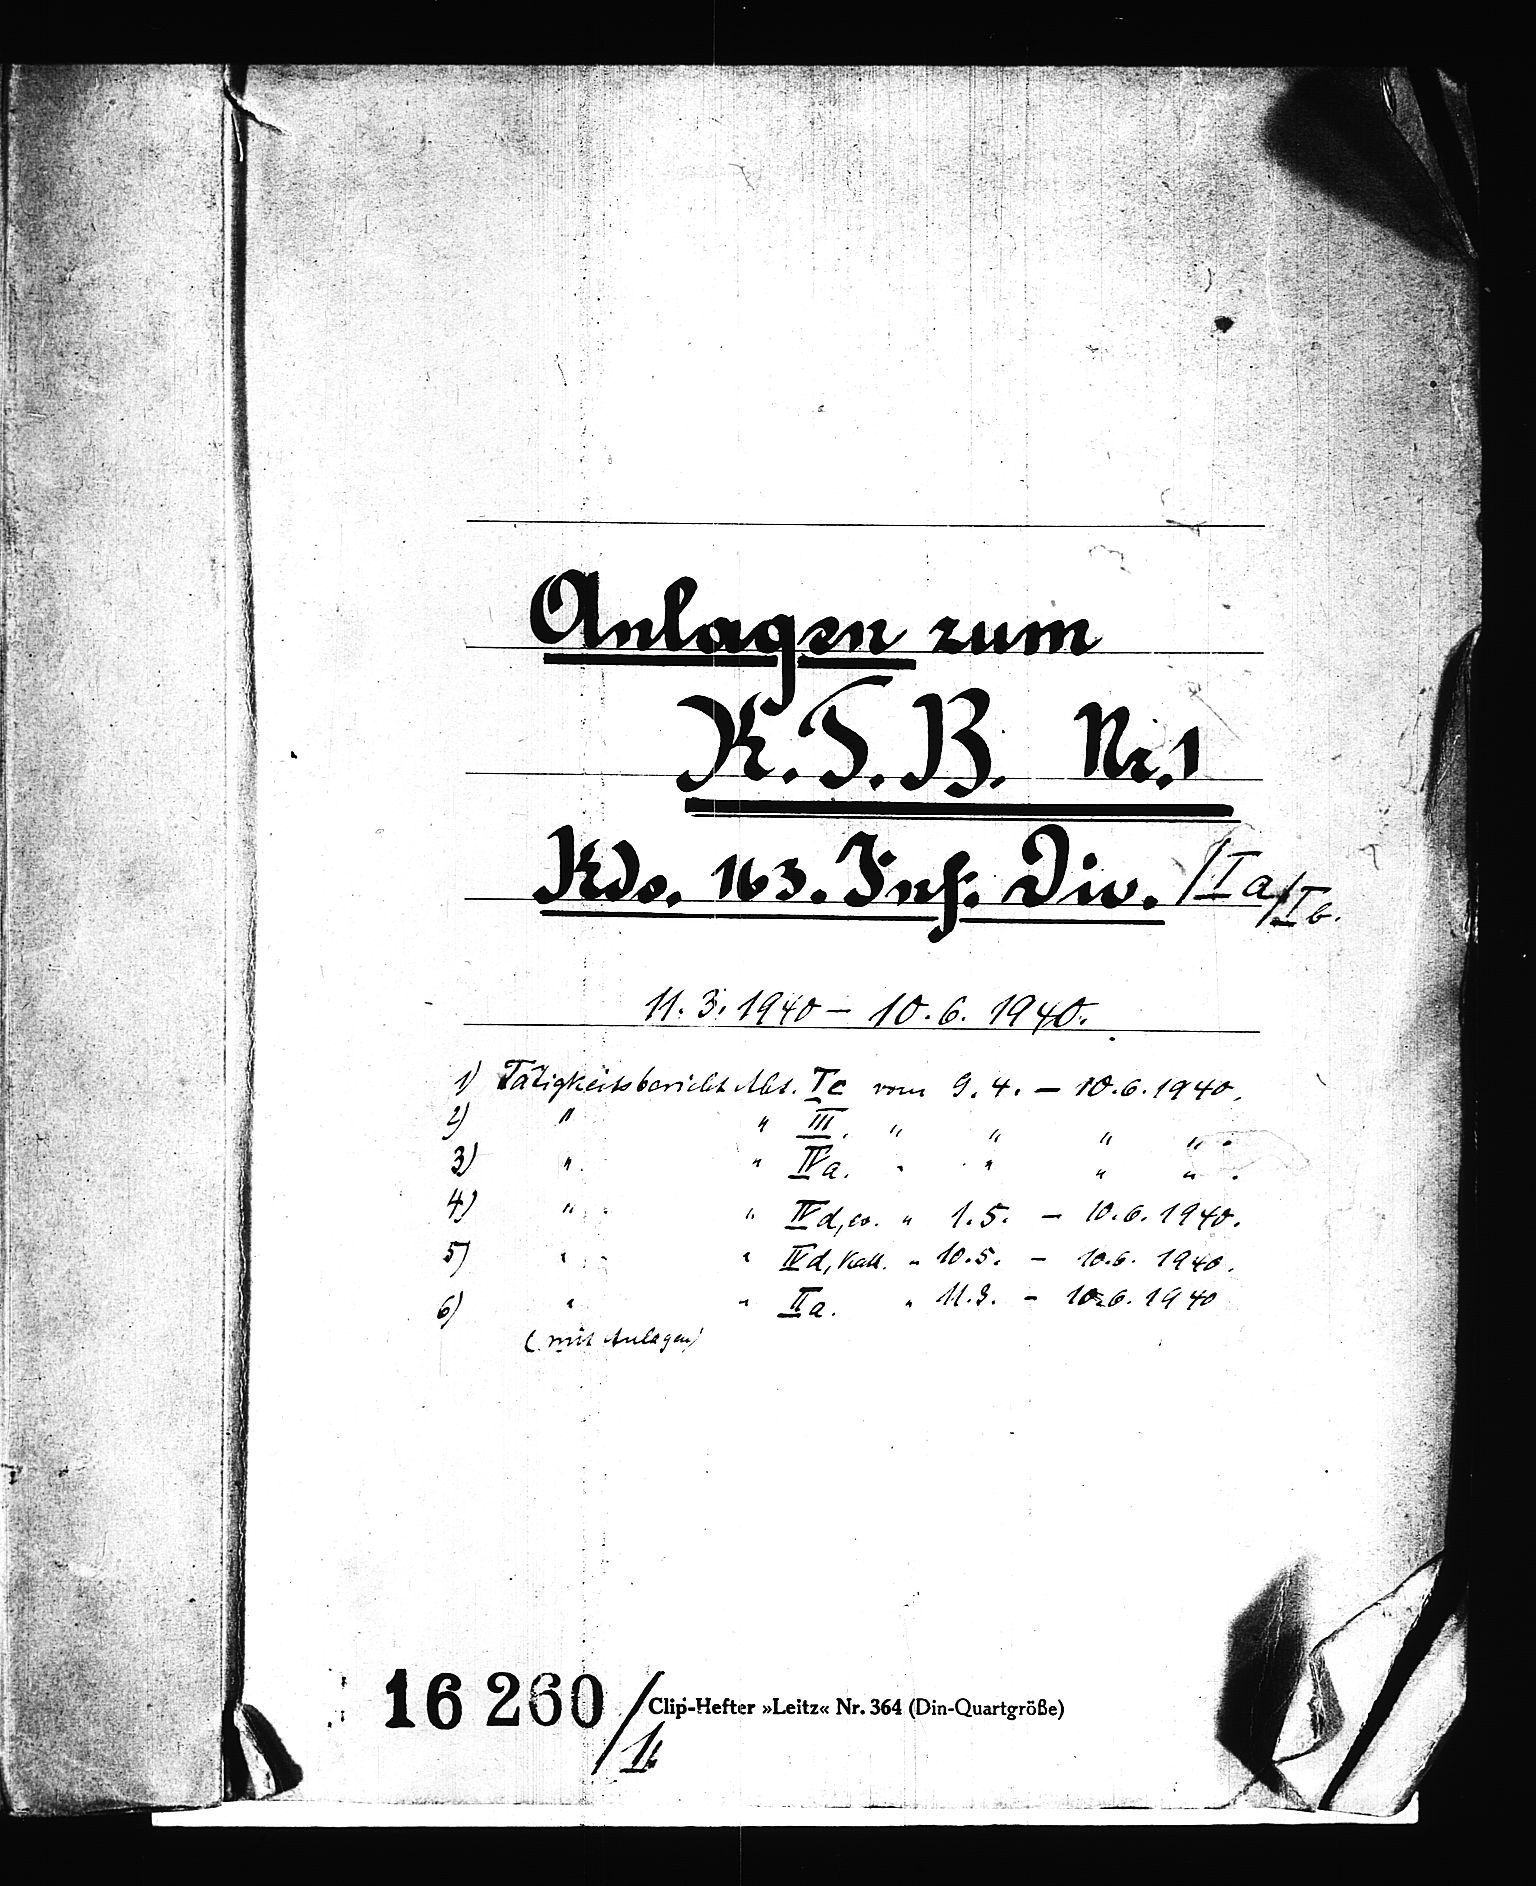 Anlagen zum
K.T.B. Nr.1
Kdo. 163. Inf. Div. /Ia/Ib.
11. 3. 1940 — 10. 6. 1940.
1) Tätigkeitsbericht Abt. Ic vom 9. 4. — 10. 6. 1940.
2) " " III. " " " " .
3) " " IVa. " " " " .
4) " " IVd, ev. " 1. 5. — 10. 6. 1940.
5) " " IVd, kath. " 10. 5. — 10. 6. 1940.
6) " " IIa. " 11. 3. — 10. 6. 1940
(mit Anlagen)
16 260/
Clip-Hefter »Leitz« Nr. 364 (Din-Quartgröße)